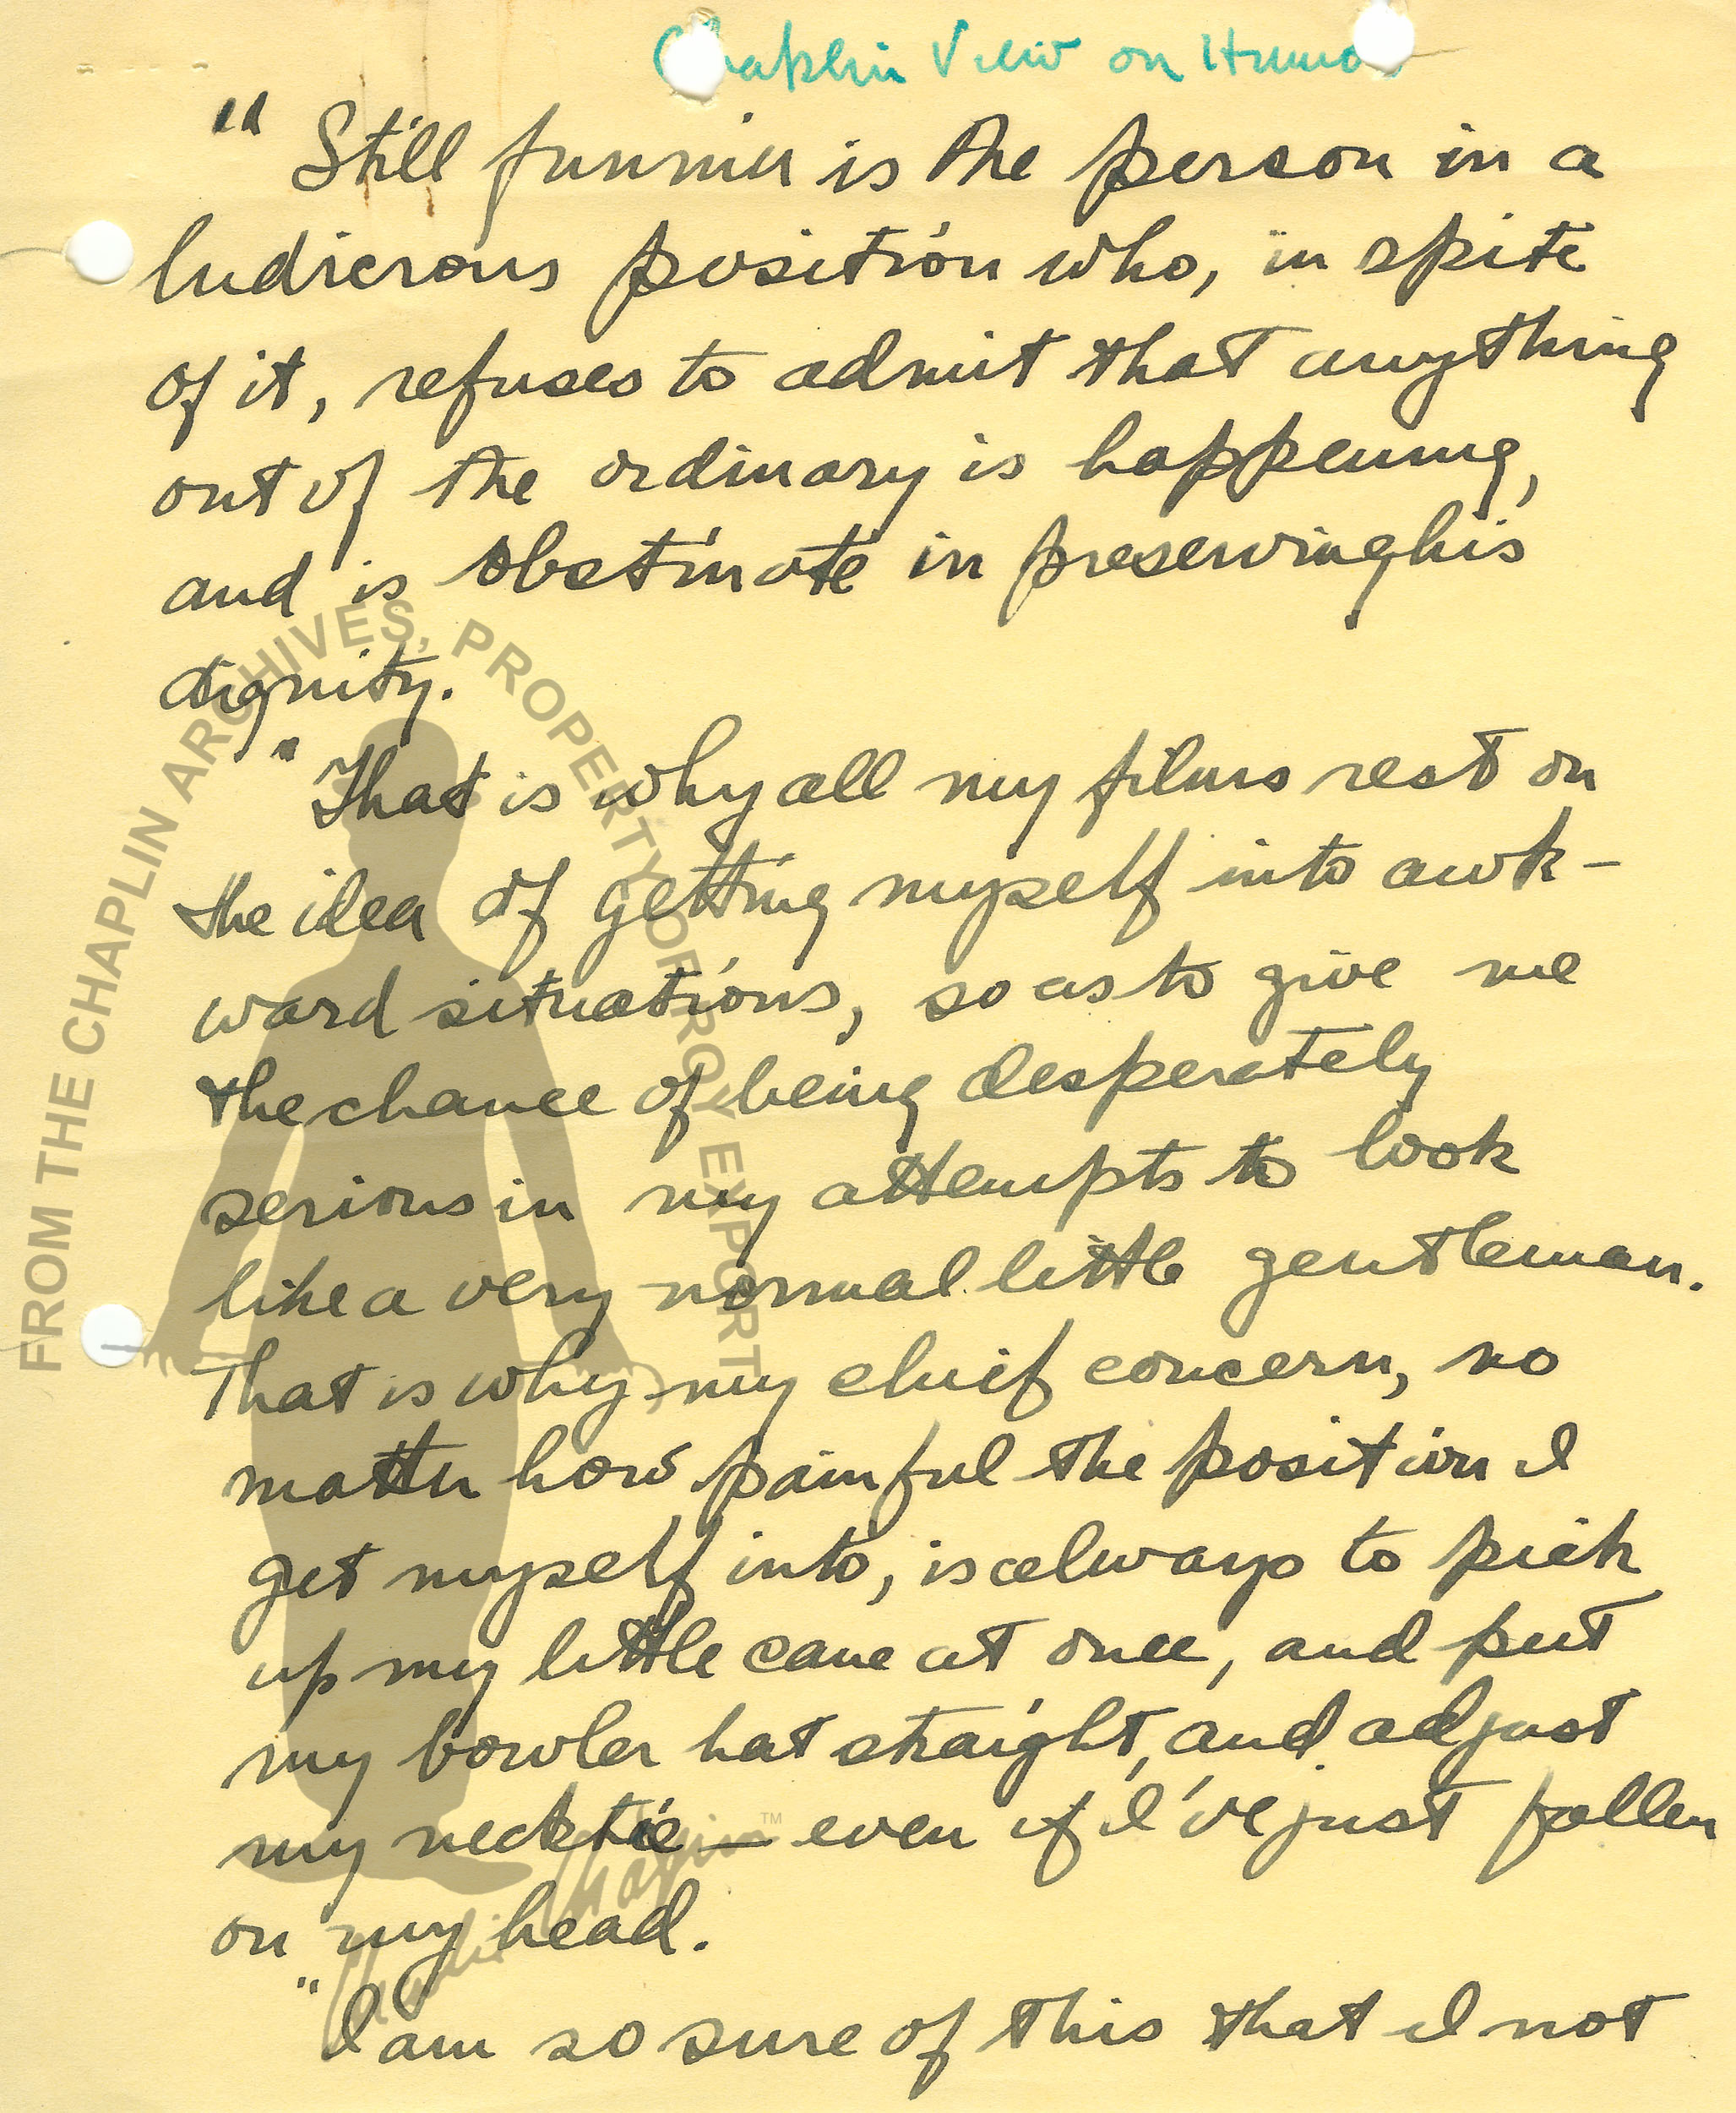 Chaplin View on Humor
" Still funnier is the person in a
ludicrous position who, in spite
of it, refuses to admit that anything
out of the ordinary is happening,
and is obstinate in preserving his
dignity.
" That is why all my films rest on
the idea of getting myself into awk-
ward situations, so as to give me
the chance of being desperately
serious in my attempts to look
like a very normal little gentleman.
That is why my chief concern, no
matter how painful the position I
get myself into, is always to pick
up my little cane at once, and put
my bowler hat straight, and adjust
my necktie — even if I've just fallen
on my head.
" I am so sure of this that I not
FROM THE CHAPLIN ARCHIVES, PROPERTY OF ROY EXPORT
Charlie Chaplin™